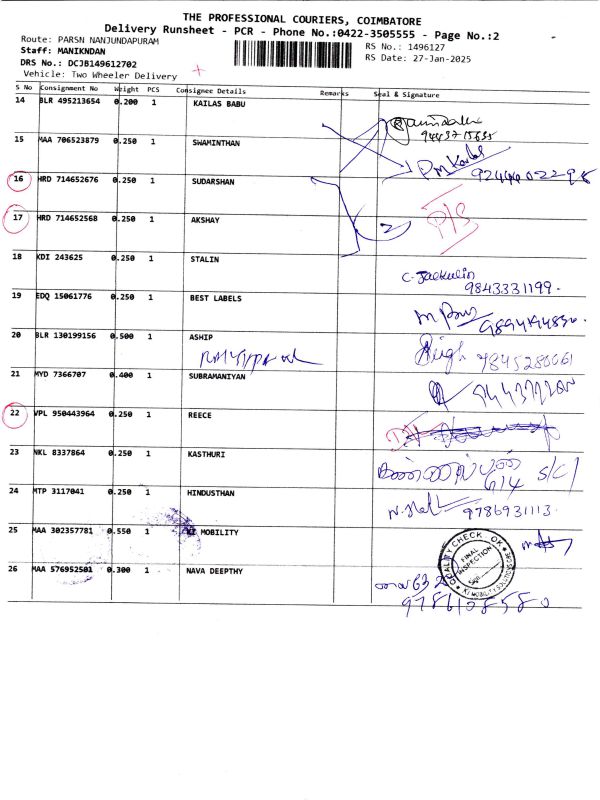 THE PROFESSIONAL COURIERS, COIMBATORE
Delivery Runsheet - PCR - Phone No.:0422-3505555 - Page No.:2
Route: PARSN NANJUNDAPURAM
RS No.: 1496127
Staff: MANIKNDAN
RS Date: 27-Jan-2025
DRS No.: DCJB149612702
Vehicle: Two Wheeler Delivery
S No Consignment No Weight PCS Consignee Details Remarks Seal & Signature
14 BLR 495213654 0.200 1 KAILAS BABU
9443715635
15 MAA 706523879 0.250 1 SWAMINTHAN
P M Kailas
16 HRD 714652676 0.250 1 SUDARSHAN
17 HRD 714652568 0.250 1 AKSHAY
2 P/S
18 KDI 243625 0.250 1 STALIN
9843331199.
19 EDQ 15061776 0.250 1 BEST LABELS
20 BLR 130199156 0.500 1 ASHIP
9845280061
21 MYD 7366707 0.400 1 SUBRAMANIYAN
22 VPL 950443964 0.250 1 REECE
23 NKL 8337864 0.250 1 KASTHURI
614 S/C/
24 MTP 3117041 0.250 1 HINDUSTHAN
9786931113.
25 MAA 302357781 0.550 1 KI MOBILITY
QUALITY CHECK OK
FINAL INSPECTION
26 MAA 576952501 0.300 1 NAVA DEEPTHY
9786108580